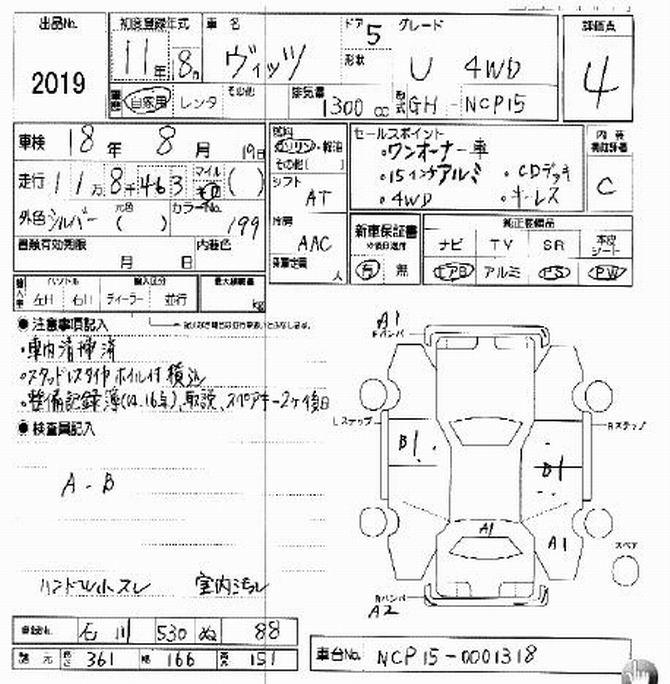 出品No. 2019
初度登録年式 11年 8月
車名 ヴィッツ
ドア 5
形状
グレード U 4WD
評価点 4
車歴 自家用 レンタ その他
排気量 1300 cc
型式 GH - NCP15
車検 18年 8月 19日
走行 11万 8千 463 マイル ( )
外色 シルバー 元色 ( ) カラーNo. 199
車検有効期限 月 日
内装色
燃料 ガソリン・軽油 その他( )
シフト AT
冷房 AAC
乗車定員 人
セールスポイント
・ワンオーナー車
・15インチアルミ ・CDデッキ
・4WD ・キーレス
内装 補助評価 C
新車保証書 有 無
純正装備品
ナビ TV SR 本皮シート
エアB アルミ PS PW
輸入車 ハンドル 左H 右H
輸入区分 ディーラー 並行
最大積載量 kg
●注意事項記入
・車内清掃済
・スタッドレスタイヤホイル付積込
・整備記録簿(12.16年)、取説、スペアキー2ヶ後日
●検査員記入
A - B
ハンドル小スレ 室内汚れ
A1
Fバンパ
Lステップ
Rステップ
B1
B1
A1
A1
スペア
Rバンパ
A2
登録No. 石川 530 ぬ 88
諸元 長さ 361 幅 166 高さ 151
車台No. NCP15-0001318